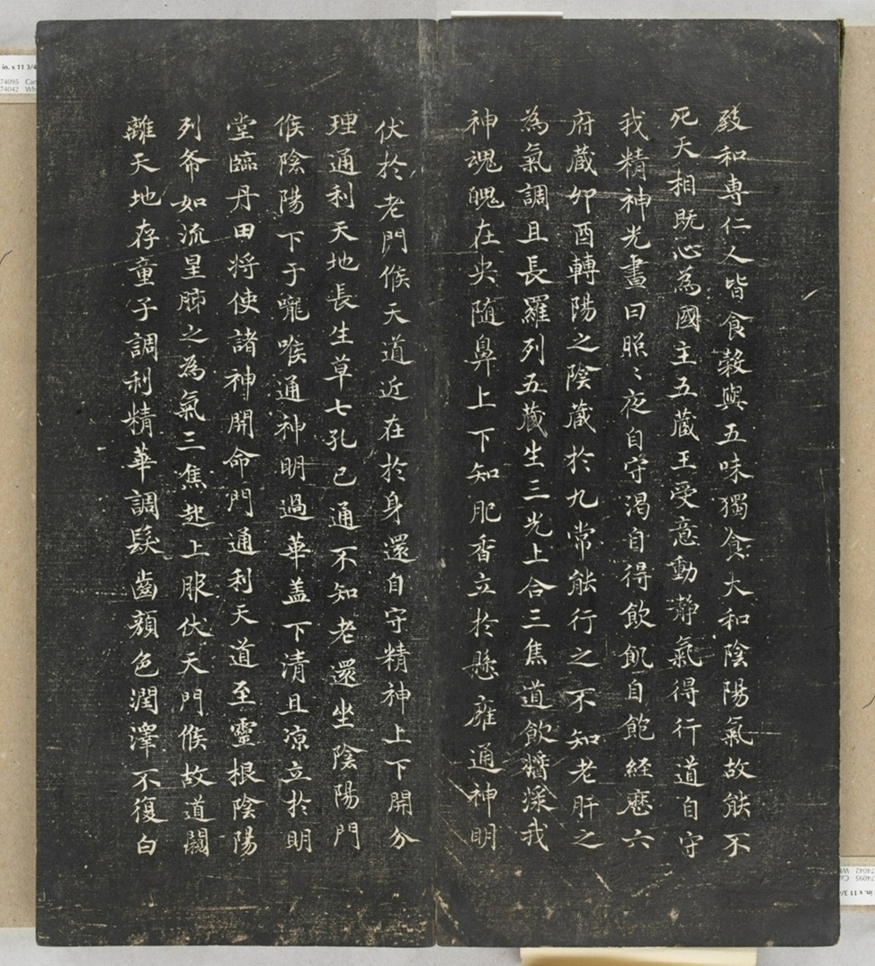 致和専仁人皆食穀與五味獨食大和陰陽氣故能不
死天相既心為國主五藏王受意動静氣得行道自守
我精神光晝日照〻夜自守渴自得飲飢自飽經歷六
府藏卯酉轉陽之陰藏於九常能行之不知老肝之
為氣調且長羅列五藏生三光上合三焦道飲醬漿我
神魂魄在央隨鼻上下知肥香立於懸雍通神明
伏於老門候天道近在於身還自守精神上下開分
理通利天地長生草七孔已通不知老還坐陰陽門
候陰陽下于嚨喉通神明過華蓋下清且涼立於明
堂臨丹田將使諸神開命門通利天道至靈根陰陽
列布如流星肺之為氣三焦起上服伏天門候故道闚
離天地存童子調利精華調髮齒顏色潤澤不復白
in. x 11 3/4
74095
74042